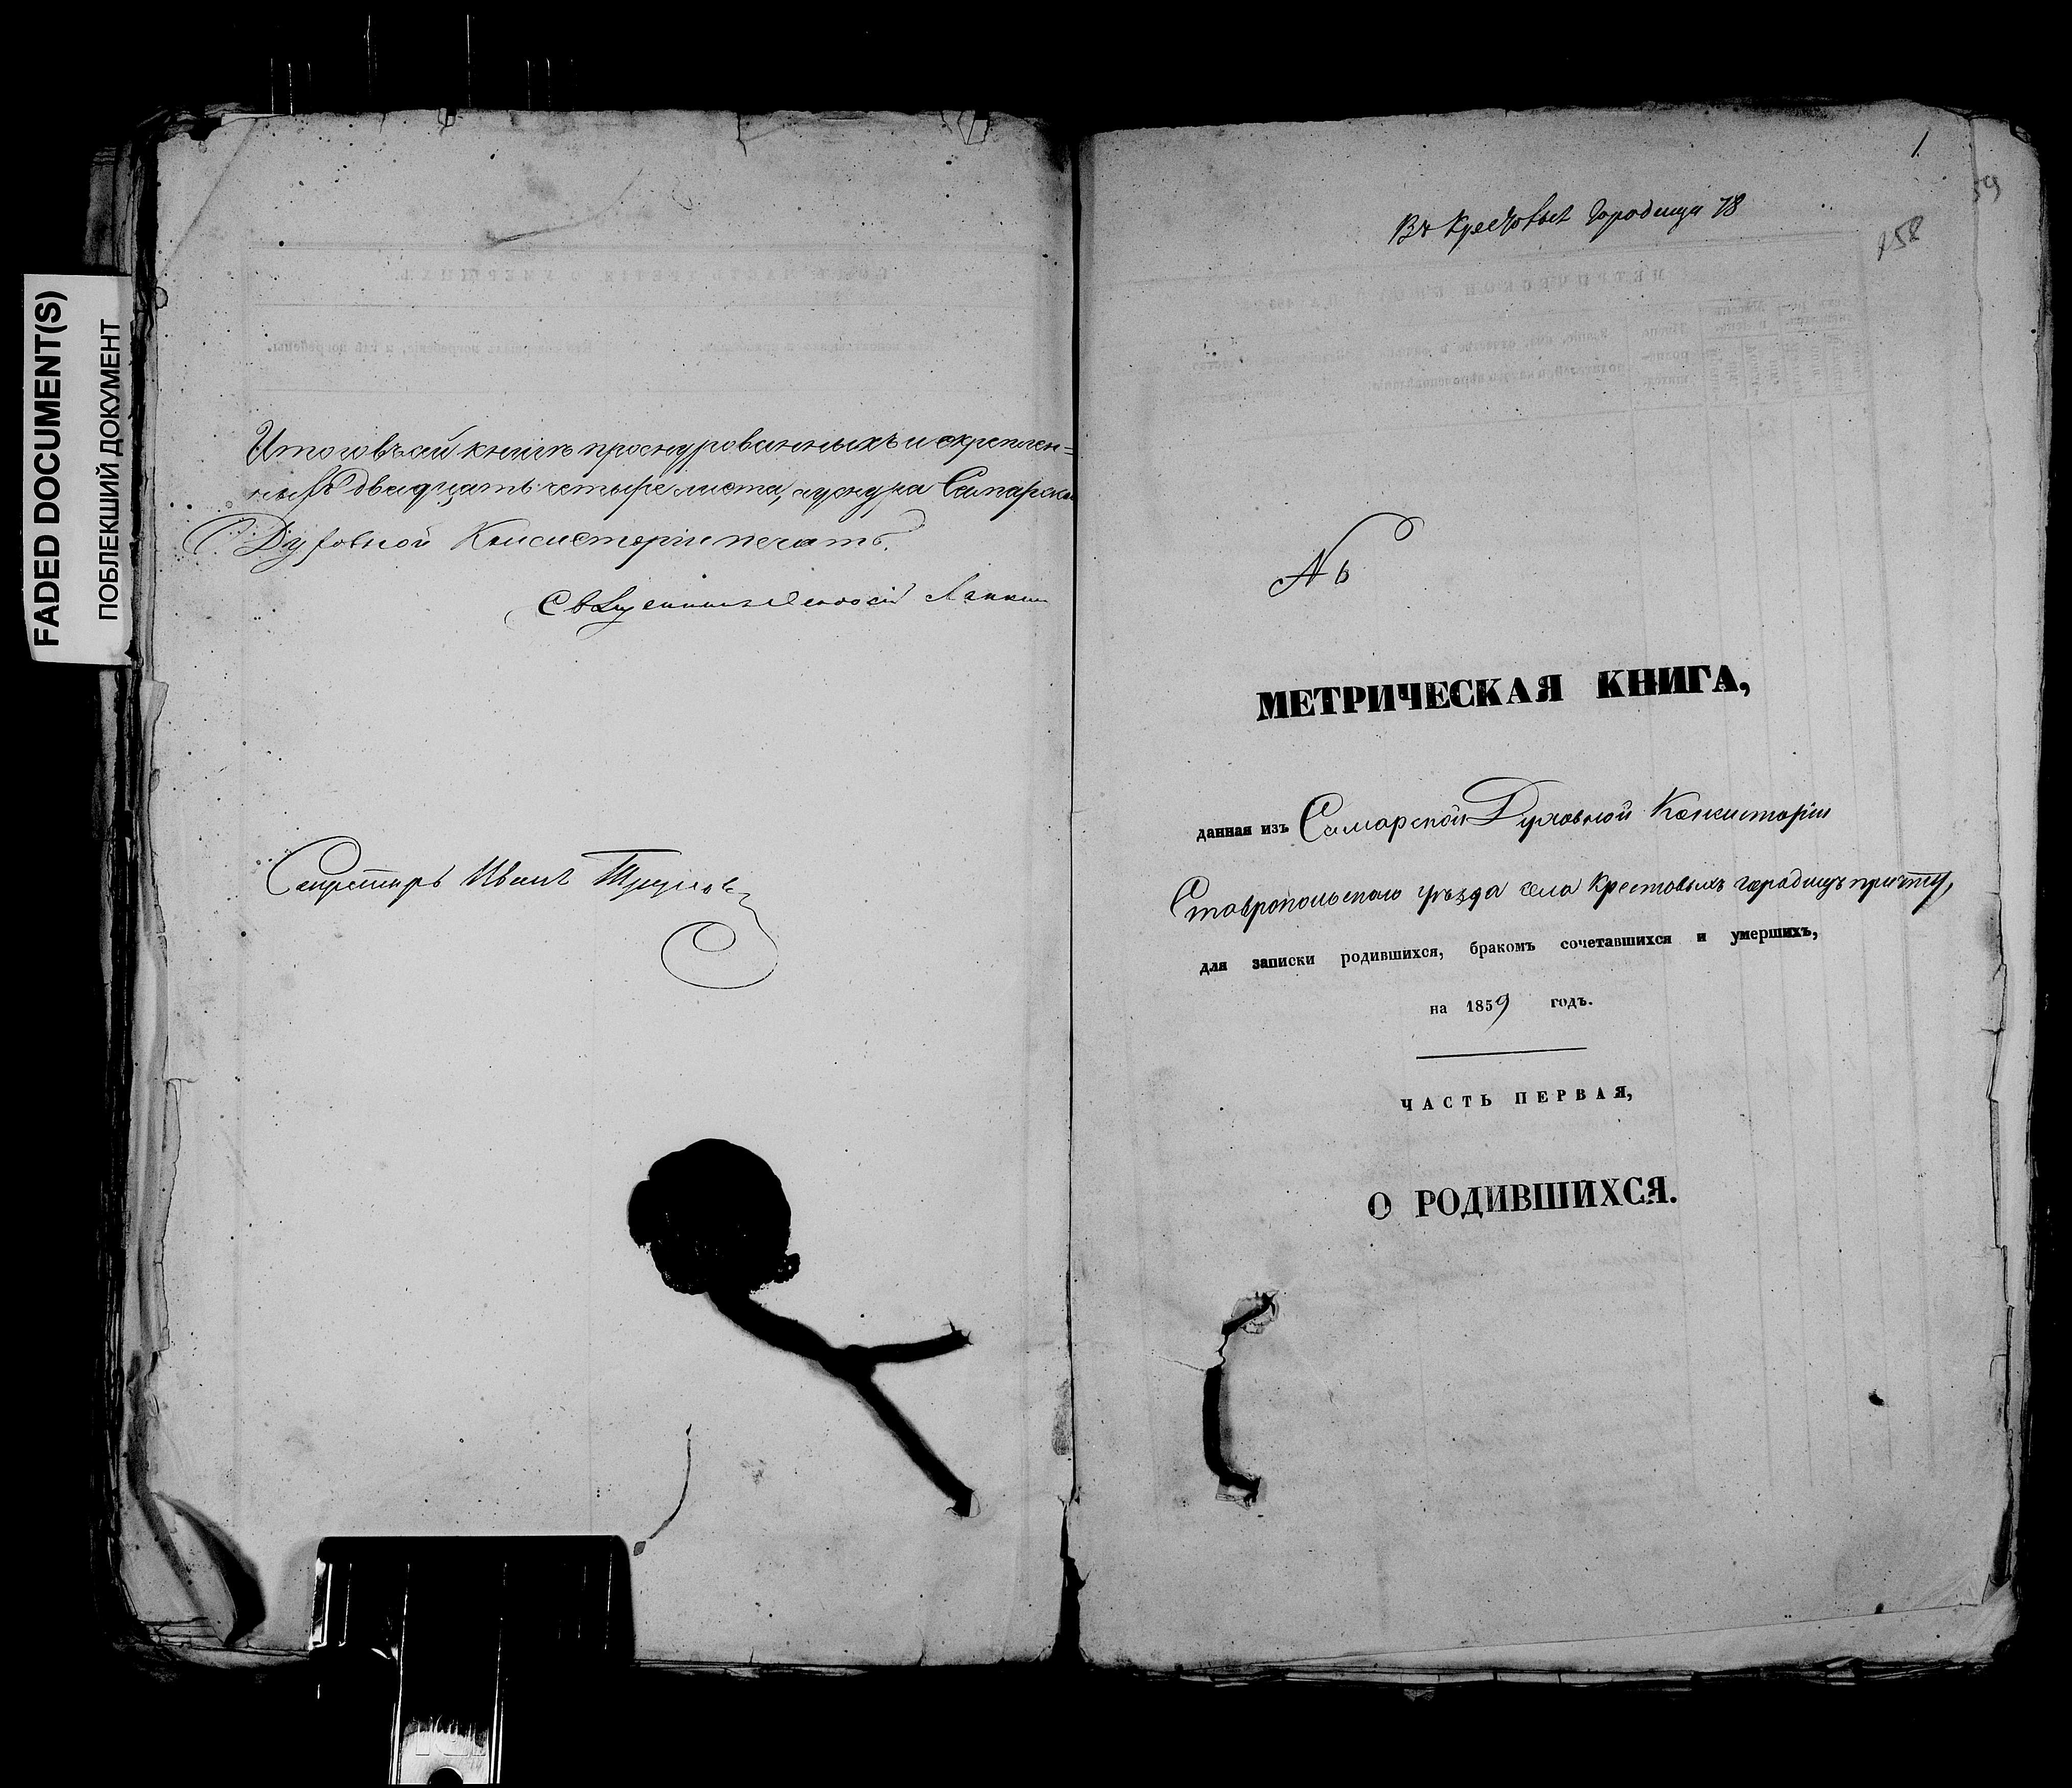 FADED DOCUMENT(S)
ПОБЛЕКШИЙ ДОКУМЕНТ
Итого въ сей книгѣ прошнурованныхъ и скреплен=
ныхъ двадцать четыре листа, у шнура Самарской
Духовной Консисторіи печать.
Священникъ
Секретарь Иванъ
1
59
Въ Крестовых Городищи 78
258
№ 6
МЕТРИЧЕСКАЯ КНИГА,
данная изъ Самарской Духовной Консисторіи
Ставропольскаго уѣзда села Крестовыхъ городищъ причту,
для записки родившихся, бракомъ сочетавшихся и умершихъ,
на 1859 годъ.
ЧАСТЬ ПЕРВАЯ,
О РОДИВШИХСЯ.